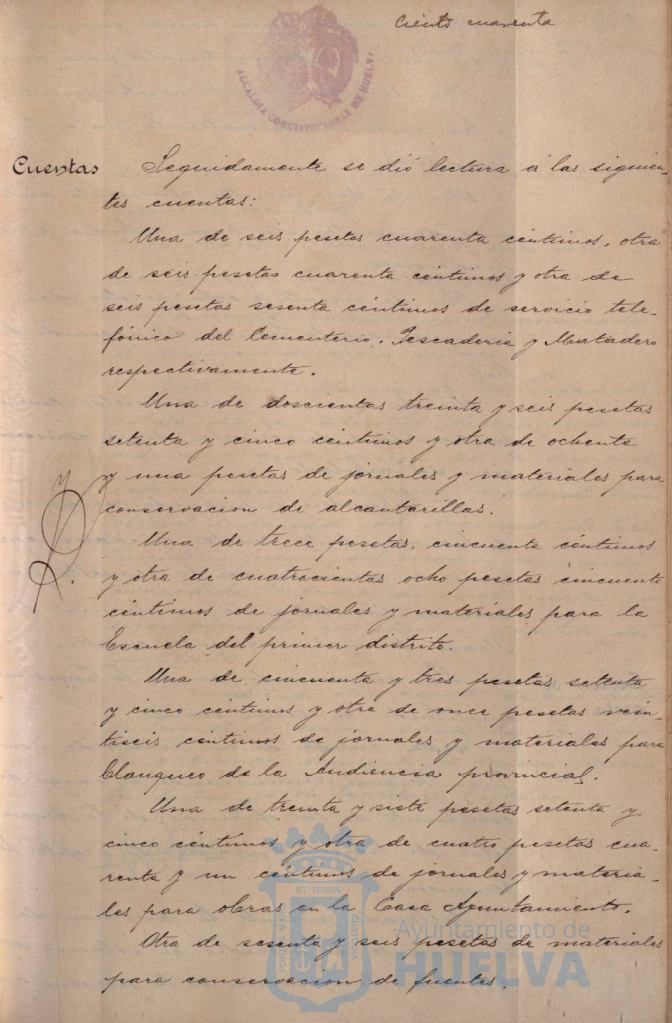 Ciento cuarenta
ALCALDIA CONSTITUCIONAL DE HUELVA
Cuentas
Seguidamente se dió lectura á las siguien-
tes cuentas:
Una de seis pesetas cuarenta céntimos, otra
de seis pesetas cuarenta céntimos y otra de
seis pesetas sesenta céntimos de servicio tele-
fónico del Cementerio, Pescaderia y Matadero
respectivamente.
Una de doscientas treinta y seis pesetas
setenta y cinco céntimos y otra de ochenta
y una pesetas de jornales y materiales para
conservacion de alcantarillas.
Una de trece pesetas, cincuenta céntimos
y otra de cuatrocientas ocho pesetas cincuenta
céntimos de jornales y materiales para la
Escuela del primer distrito.
Una de cincuenta y tres pesetas setenta
y cinco céntimos y otra de once pesetas vein-
tiseis céntimos de jornales y materiales para
blanqueo de la Audiencia provincial.
Una de treinta y siete pesetas setenta y
cinco céntimos y otra de cuatro pesetas cua-
renta y un céntimos de jornales y materia-
les para obras en la Casa Ayuntamiento.
Otra de sesenta y seis pesetas de materiales
para conservacion de fuentes.
PORTUS MARIS
ET TERRAE
CUSTODIA
Ayuntamiento de
HUELVA